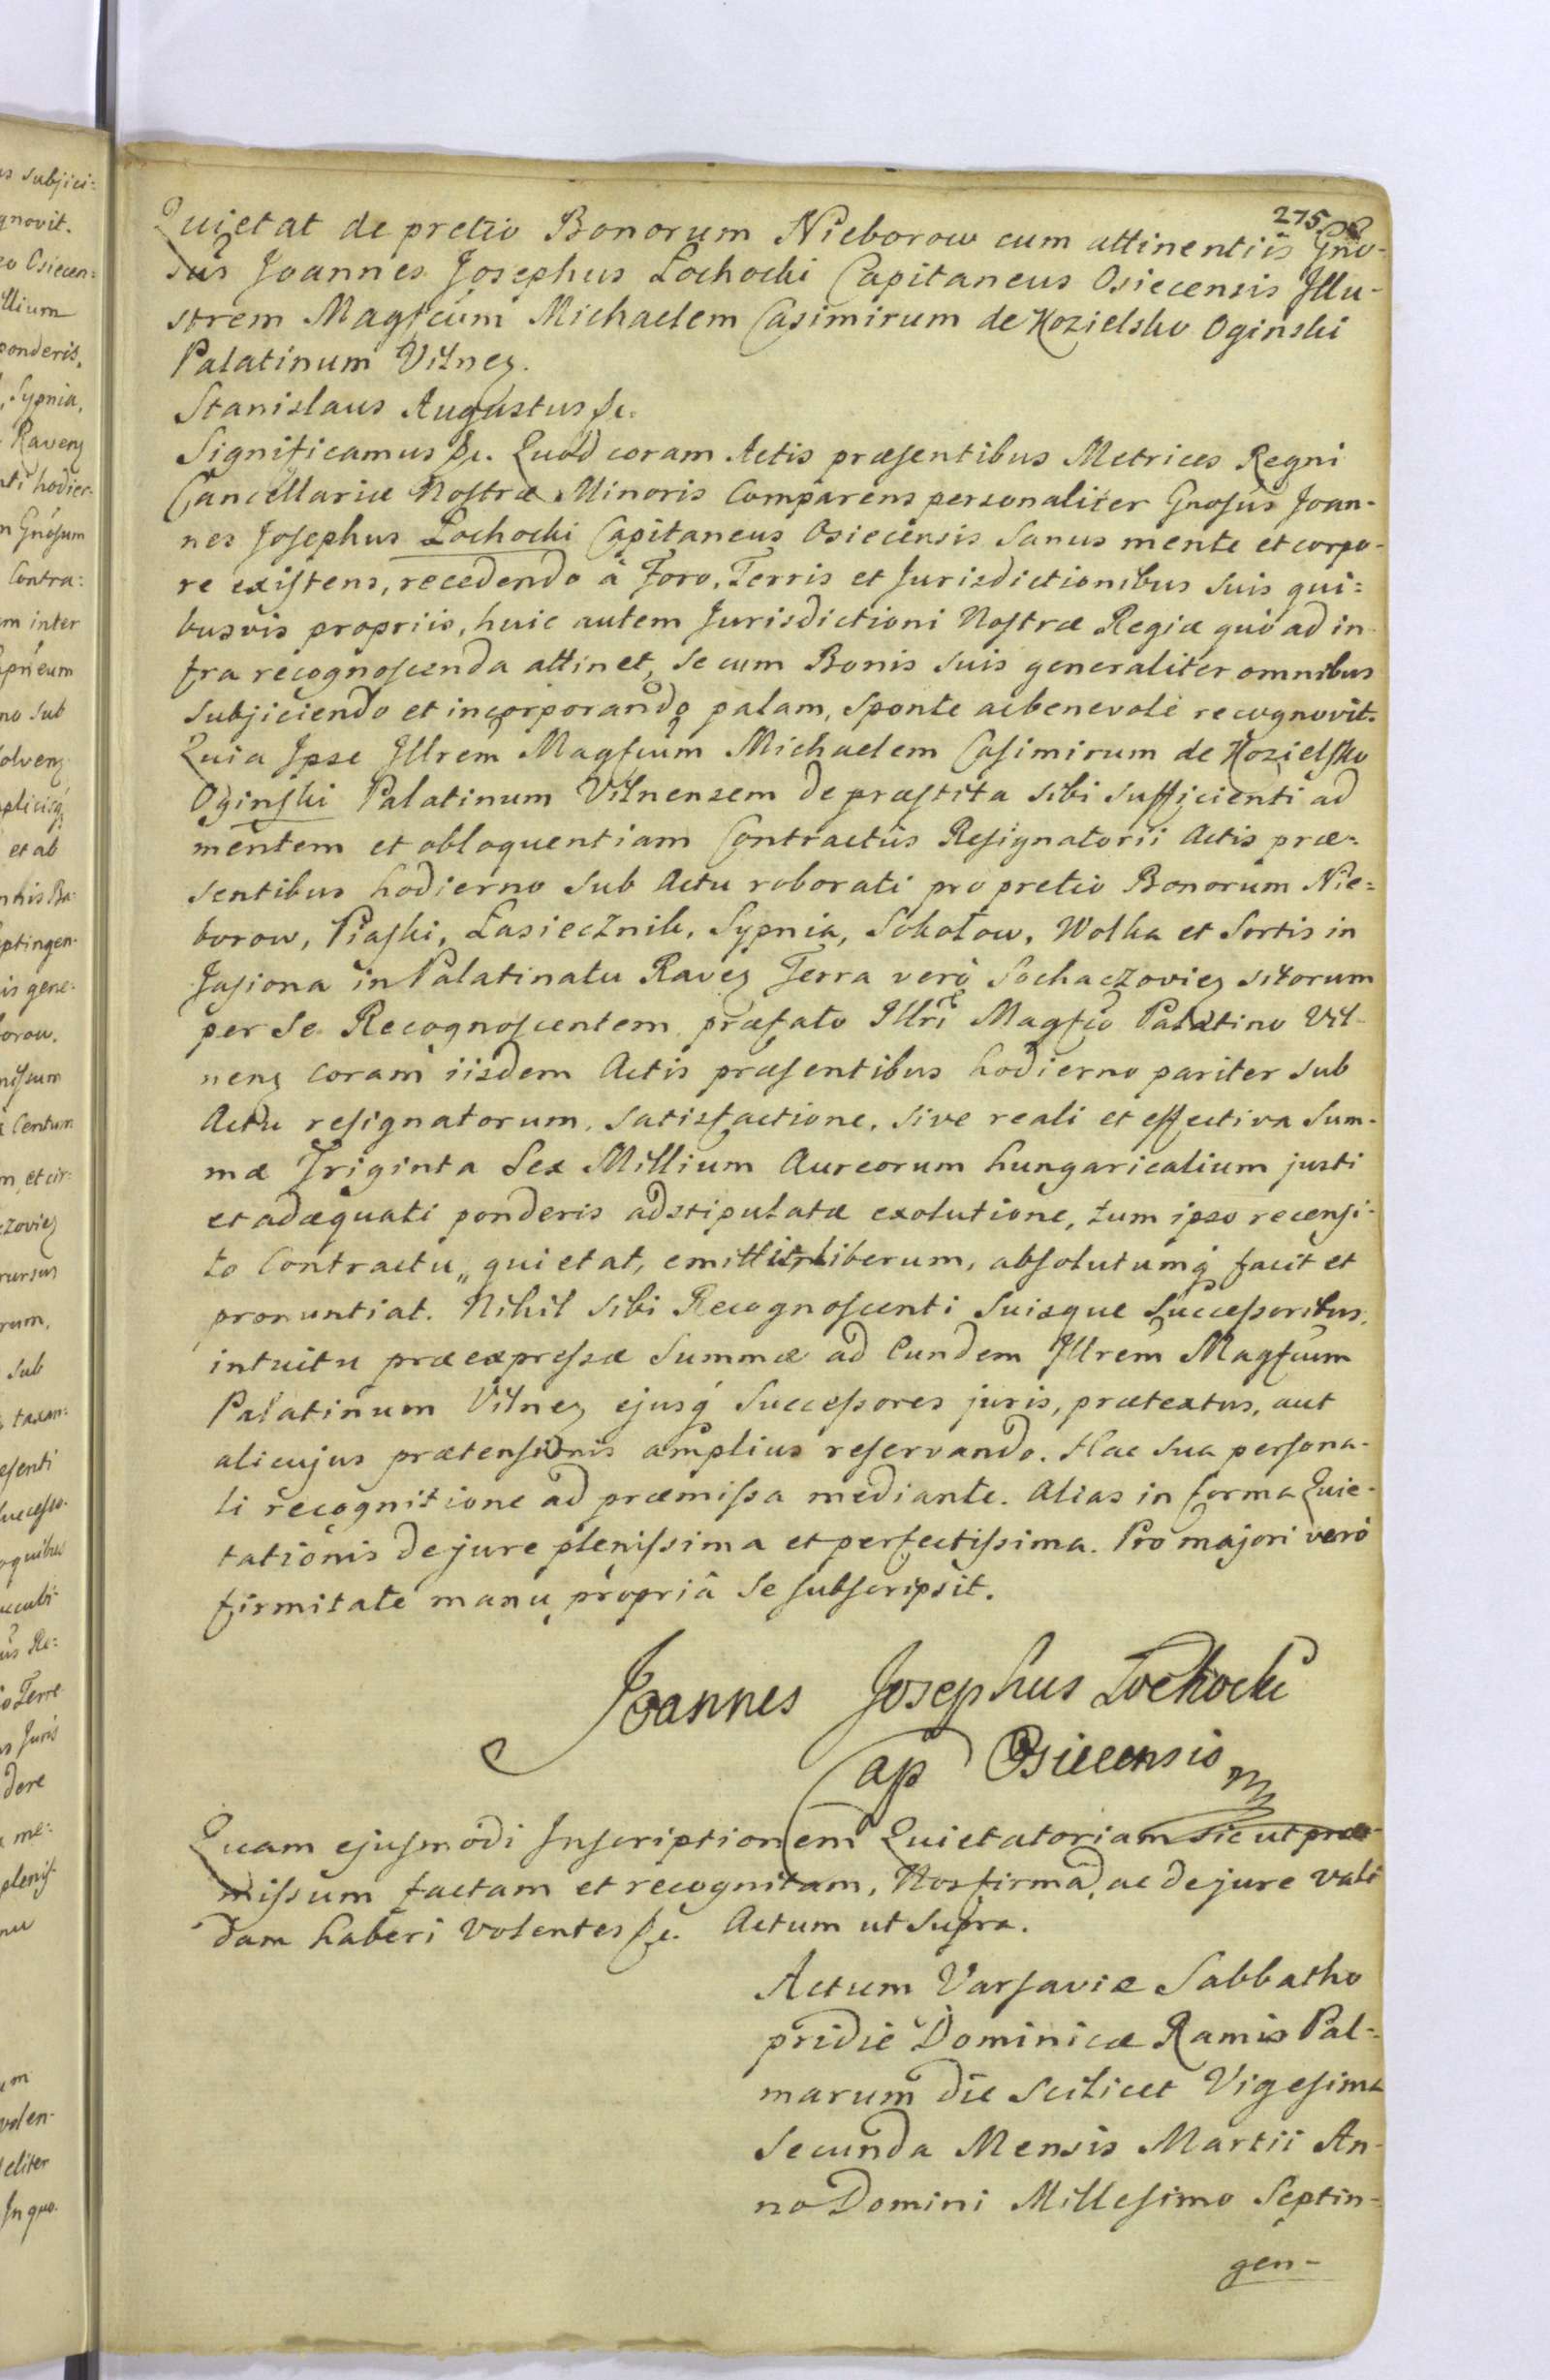 275
Quietat de pretio Bonorum Nieborow cum attinentiis Gno-
sus Joannes Josephus Łochocki Capitaneus Osiecensis Illu-
strem Magfcum Michaelem Casimirum de Kozielsko Oginski
Palatinum Vilnen.
Stanislaus Augustus &c.
Significamus &c. Quod coram Actis præsentibus Metrices Regni
Cancellariæ Nostræ Minoris Comparens personaliter Gnosus Joan-
nes Josephus Łochocki Capitaneus Osiecensis Sanus mente et corpo-
re existens, recedendo à Foro, Terris et Jurisdictionibus suis qui=
busvis propriis, huic autem Jurisdictioni Nostræ Regiæ quò ad in-
fra recognoscenda attinet, se cum Bonis suis generaliter omnibus
subjiciendo et incorporando palam, sponte ac benevole recognovit.
Quia Ipse Illrem Magfcum Michaelem Casimirum de Kozielsko
Oginski Palatinum Vilnensem de præstita sibi sufficienti ad
mentem et obloquentiam Contractus Resignatorii Actis præ=
sentibus hodierno sub Actu roborati pro pretio Bonorum Nie=
borow, Piaski, Łasiecznik, Sypnia, Sokołow, Wolka et Sortis in
Jasiona in Palatinatu Raven Terra verò Sochaczovien sitorum
per Se Recognoscentem præfato Illri Magfco Palatino Vil-
nen coram iisdem Actis præsentibus hodierno pariter sub
Actu resignatorum, satisfactione, sive reali et effectiva Sum-
mæ Triginta Sex Millium Aureorum hungaricalium justi
et adæquati ponderis adstipulatæ exolutione, tum ipso recensi-
to Contractu, quietat, emittit, liberum, absolutumq facit et
pronuntiat. Nihil sibi Recognoscenti Suisque Successoribus,
intuitu præexpressæ Summæ ad Eundem Illrem Magfcum
Palatinum Vilnen ejusq Successores juris, prætextus, aut
alicujus prætensionis amplius reservando. Hac sua persona-
li recognitione ad præmissa mediante. Alias in forma Quie-
tationis de jure plenissima et perfectissima. Pro majori verò
firmitate manu propriâ se subscripsit.
Joannes Josephus Łochocki
Cap Osiecensis
Quam ejusmodi Inscriptionem Quietatoriam sic ut præ-
missum factam et recognitam, Nos firma, ac de jure vali
dam haberi volentes &c. Actum ut supra.
Actum Varsaviæ Sabbatho
pridie Dominicæ Ramis Pal=
marum die scilicet Vigesima
Secunda Mensis Martii An-
no Domini Millesimo Septin-
gen-